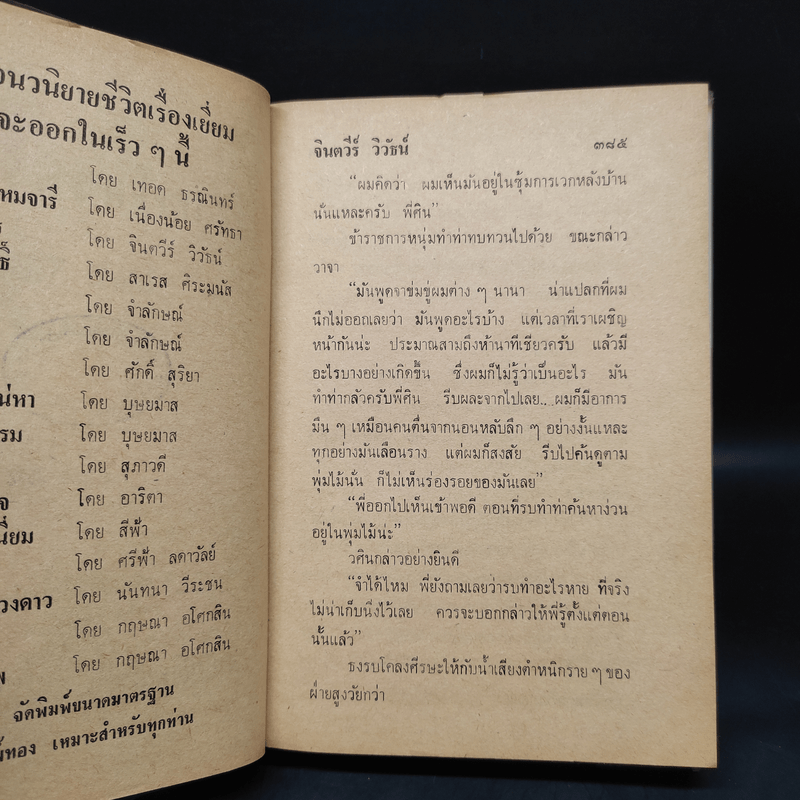 นวนิยายชีวิตเรื่องเยี่ยม
จะออกในเร็ว ๆ นี้
โดย เทอด ธรณินทร์
หมจารี
โดย เนื่องน้อย ศรัทธา
โดย จินตวีร์ วิวัธน์
โดย สาเรส ศิระมนัส
โดย จำลักษณ์
โดย จำลักษณ์
โดย ศักดิ์ สุริยา
น่หา
โดย บุษยมาส
รม
โดย บุษยมาส
โดย สุภาวดี
จ
โดย อาริตา
นี่ยม
โดย สีฟ้า
โดย ศรีฟ้า ลดาวัลย์
วงดาว
โดย นันทนา วีระชน
โดย กฤษณา อโศกสิน
โดย กฤษณา อโศกสิน
จัดพิมพ์ขนาดมาตรฐาน
ทอง เหมาะสำหรับทุกท่าน
จินตวีร์ วิวัธน์
๓๘๕
“ผมคิดว่า ผมเห็นมันอยู่ในซุ้มการเวกหลังบ้าน
นั่นแหละครับ พี่ศิน”
ข้าราชการหนุ่มทำท่าทบทวนไปด้วย ขณะกล่าว
วาจา
“มันพูดจาข่มขู่ผมต่าง ๆ นานา น่าแปลกที่ผม
นึกไม่ออกเลยว่า มันพูดอะไรบ้าง แต่เวลาที่เราเผชิญ
หน้ากันน่ะ ประมาณสามถึงห้านาทีเชียวครับ แล้วมี
อะไรบางอย่างเกิดขึ้น ซึ่งผมก็ไม่รู้ว่าเป็นอะไร มัน
ทำท่ากลัวครับพี่ศิน รีบผละจากไปเลย... ผมก็มีอาการ
มึน ๆ เหมือนคนตื่นจากนอนหลับลึก ๆ อย่างงั้นแหละ
ทุกอย่างมันเลือนราง แต่ผมก็สงสัย รีบไปค้นดูตาม
พุ่มไม้นั่น ก็ไม่เห็นร่องรอยของมันเลย”
“พี่ออกไปเห็นเข้าพอดี ตอนที่รบทำท่าค้นหาง่วน
อยู่ในพุ่มไม้น่ะ”
วศินกล่าวอย่างยินดี
“จำได้ไหม พี่ยังถามเลยว่ารบทำอะไรหาย ที่จริง
ไม่น่าเก็บนิ่งไว้เลย ควรจะบอกกล่าวให้พี่รู้ตั้งแต่ตอน
นั้นแล้ว”
ธงรบโคลงศีรษะให้กับน้ำเสียงตำหนิกราย ๆ ของ
ฝ่ายสูงวัยกว่า